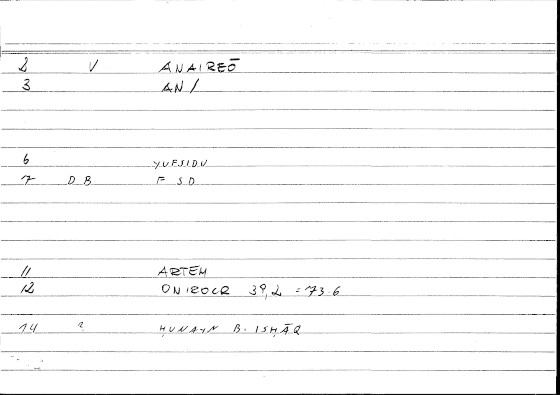 2 V ANAIREŌ
3 AN/
6 YUFSIDU
7 DB F SD
11 ARTEM
12 ONIROCR 39,2 = 73.6
14 ? ḤUNAYN B. ISḤĀQ